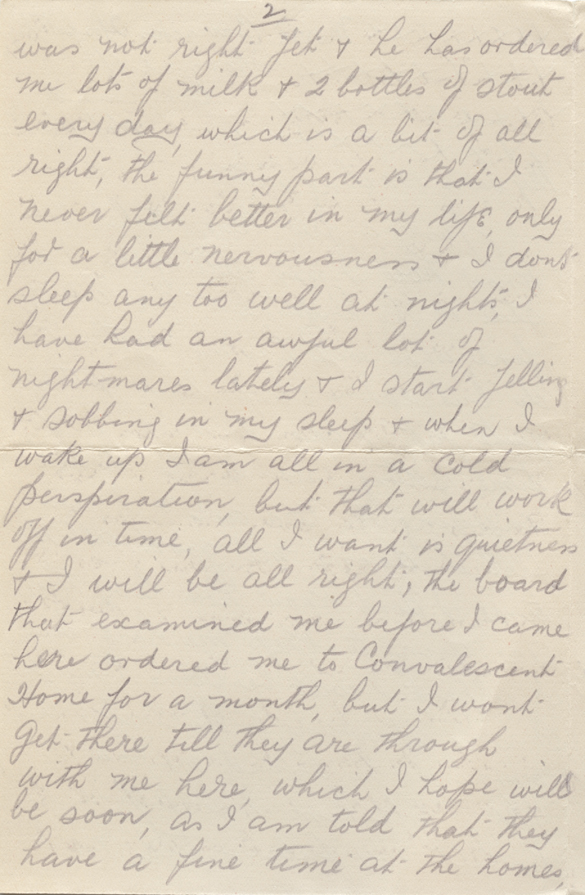 2
was not right yet & he has ordered
me lots of milk & 2 bottles of stout
every day, which is a bit of all
right, the funny part is that I
never felt better in my life, only
for a little nervousness & I dont
sleep any too well at nights, I
have had an awful lot of
nightmares lately & I start yelling
& sobbing in my sleep & when I
wake up I am all in a cold
perspiration, but that will work
off in time, all I want is quietness
& I will be all right, the board
that examined me before I came
here ordered me to Convalescent
Home for a month, but I wont
get there till they are through
with me here, which I hope will
be soon, as I am told that they
have a fine time at the homes